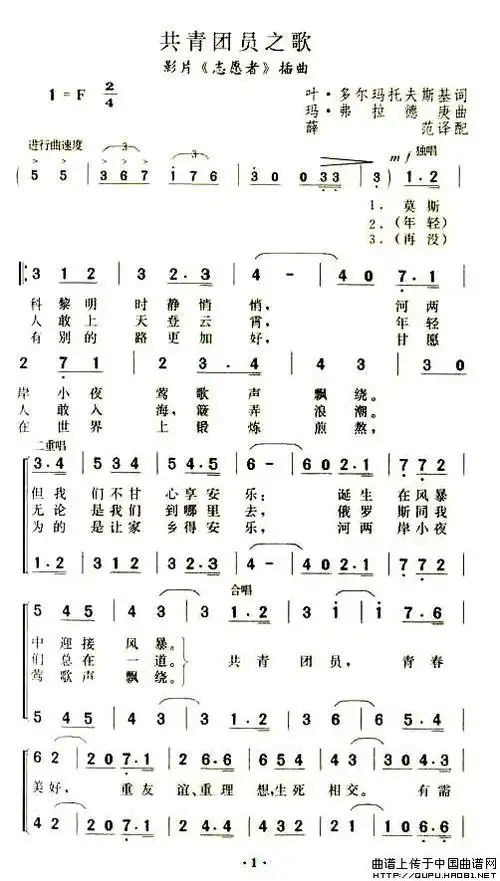 共青团员之歌
影片《志愿者》插曲
1=F 2/4
叶·多尔玛托夫斯基词
玛·弗拉德庚曲
薛范译配
进行曲速度
mf 独唱
(5 5 | 3 6 7 | i 7 6 | 3 0 0 3 3 | 3) 1·2 |
1. 莫斯
2.(年轻)
3.(再没)
3 1 2 | 3 2·3 | 4 - | 4 0 7·1 |
科黎明时静悄悄,河两
人敢上天登云霄,年轻
有别的路更加好,甘愿
2 7 1 | 2 3·4 | 4 3 | 3 0
岸小夜莺歌声飘绕。
人敢入海,簸弄浪潮。
在世界上锻炼煎熬,
二重唱
3·4 | 5 3 4 | 5 4·5 | 6 - | 6 0 2·1 | 7 7 2 |
但我们不甘心享安乐;诞生在风暴
无论是我们到哪里去,俄罗斯同我
为的是让家乡得安乐,河两岸小夜
1·2 | 3 1 2 | 3 2·3
合唱
5 4 5 | 4 3 | 3 1·2 | 3 i | i 7·6 |
中迎接风暴。
们总在一道。
莺歌声飘绕。
共青团员,青春
5 4 5 | 4 3 | 3 1·2 | 3
6 2 | 2 0 7·1 | 2 6·6 | 6 5 4 | 4 3 | 3 0 4·3 |
美好,重友谊、重理想,生死相交。有需
4 2 | 2 0 7·1
·1·
曲谱上传于中国曲谱网
HTTP://QUPU.HAO81.NET